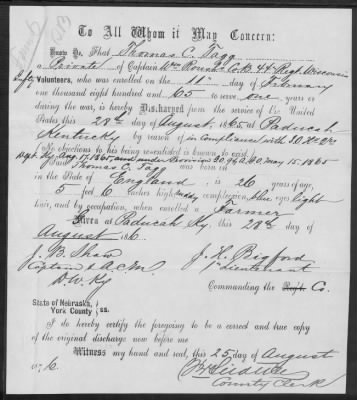 To All Whom it May Concern:
Know Ye, That Thomas C. Tagg
a Private of Captain Wm Rounds Co. B. 44 Regt Wisconsin
Infy Volunteers, who was enrolled on the 11 day of February
one thousand eight hundred and 65 to serve one years or
during the war, is hereby Discharged from the service of the United
States this 28th day of August, 1865, at Paducah
Kentucky by reason of in compliance with
(No objections to his being reenlisted is known to exist.)
Aug. 17. 1865, and under Provision May 15. 1865
Thomas C. Tagg was born in
in the State of England, is 26 years of age,
5 feet 6 inches high, ruddy complexion, blue eyes, light
hair, and by occupation, when enrolled a Farmer
Given at Paducah Ky. this 28th day of
August 186
J. B. Shaw
Captain & A.C.M.
D. W. Ky
J. H. Bigford
1st Lieutenant
Commanding the Regt. C.
State of Nebraska,
York County ss.
I do hereby certify the foregoing to be a correct and true copy
of the original discharge now before me
Witness my hand and seal, this 25 day of August
County Clerk